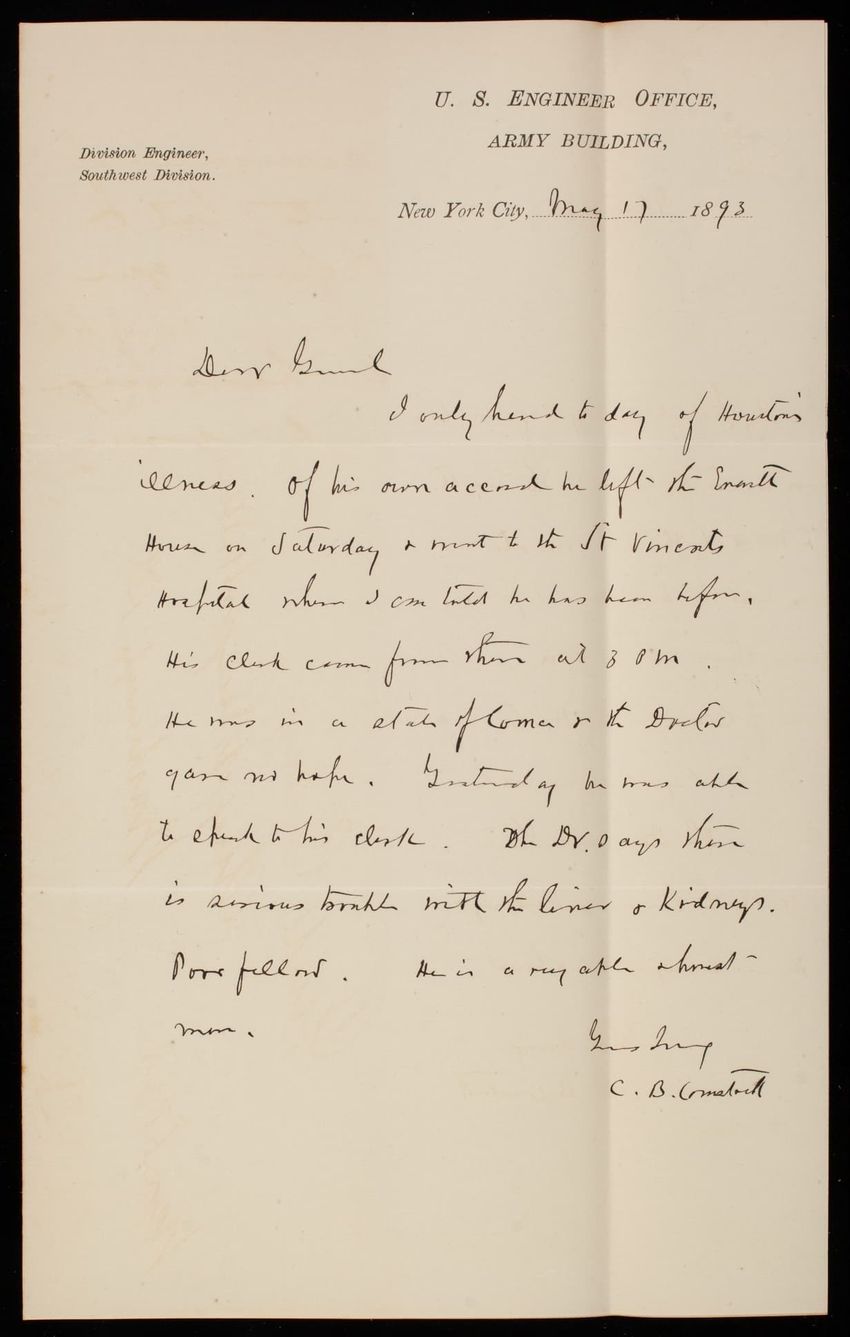 U. S. ENGINEER OFFICE,
ARMY BUILDING,
Division Engineer,
Southwest Division.
New York City, May 17 1893
Dear Genral
I only heard to day of Houston's
illness. Of his own accord he left the Everett
House on Saturday & went to the St Vincents
Hospital where I am told he has been before.
His clerk came from there at 3 P M.
He was in a state of Coma & the Doctor
gave no hope. Yesterday he was able
to speak to his clerk. The Dr. says there
is serious trouble with the liver & Kidneys.
Poor fellow. He is a very able & honest
man.
Yours Truly
C. B. Comstock